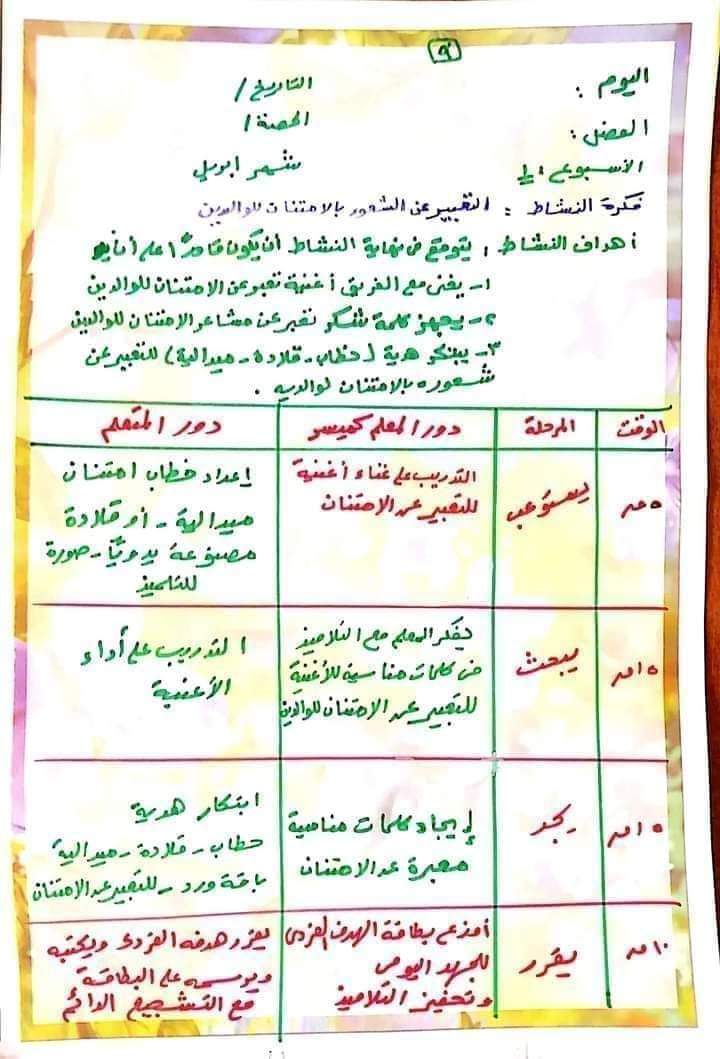 ٩
اليوم :
التاريخ /
الفصل :
الحصة /
الأسبوع :
شهر ابريل
فكرة النشاط : التعبير عن الشعور بالامتنان للوالدين
أهداف النشاط : يتوقع فى نهاية النشاط أن يكون قادرًا على أن
١- يغنى مع الفريق أغنية تعبر عن الامتنان للوالدين
٢- يجهز كلمة شكر تعبر عن مشاعر الامتنان للوالدين
٣- يبتكر هدية (خطاب - قلادة - ميدالية) للتعبير عن
شعوره بالامتنان لوالديه .
الوقت المرحلة دور المعلم كميسر دور المتعلم
٥ د
يستوعب
التدريب على غناء أغنية
للتعبير عن الامتنان
إعداد خطاب امتنان
ميدالية - أو قلادة
مصنوعة يدويًا - صورة
للتلميذ
١٥ د
يبحث
يفكر المعلم مع التلاميذ
فى كلمات مناسبة للأغنية
للتعبير عن الامتنان للوالدين
التدريب على أداء
الأغنية
١٥ د
يجد
إيجاد كلمات مناسبة
معبرة عن الامتنان
ابتكار هدية
خطاب - قلادة - ميدالية
باقة ورد - للتعبير عن الامتنان
١٠ د
يقرر
أوزع بطاقة الهدف الفردى
للجهد اليومى
وتحفيز التلاميذ
يقرر هدفه الفردى ويكتبه
ويرسمه على البطاقة
مع التشجيع الدائم